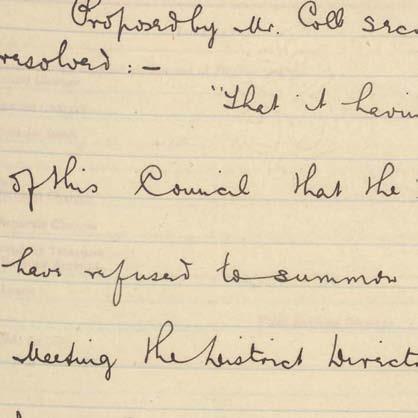 Proposed by Mr. Coll sec
resolved : -
"That it havin
of this Council that the
have refused to summon
Meeting the District Direct